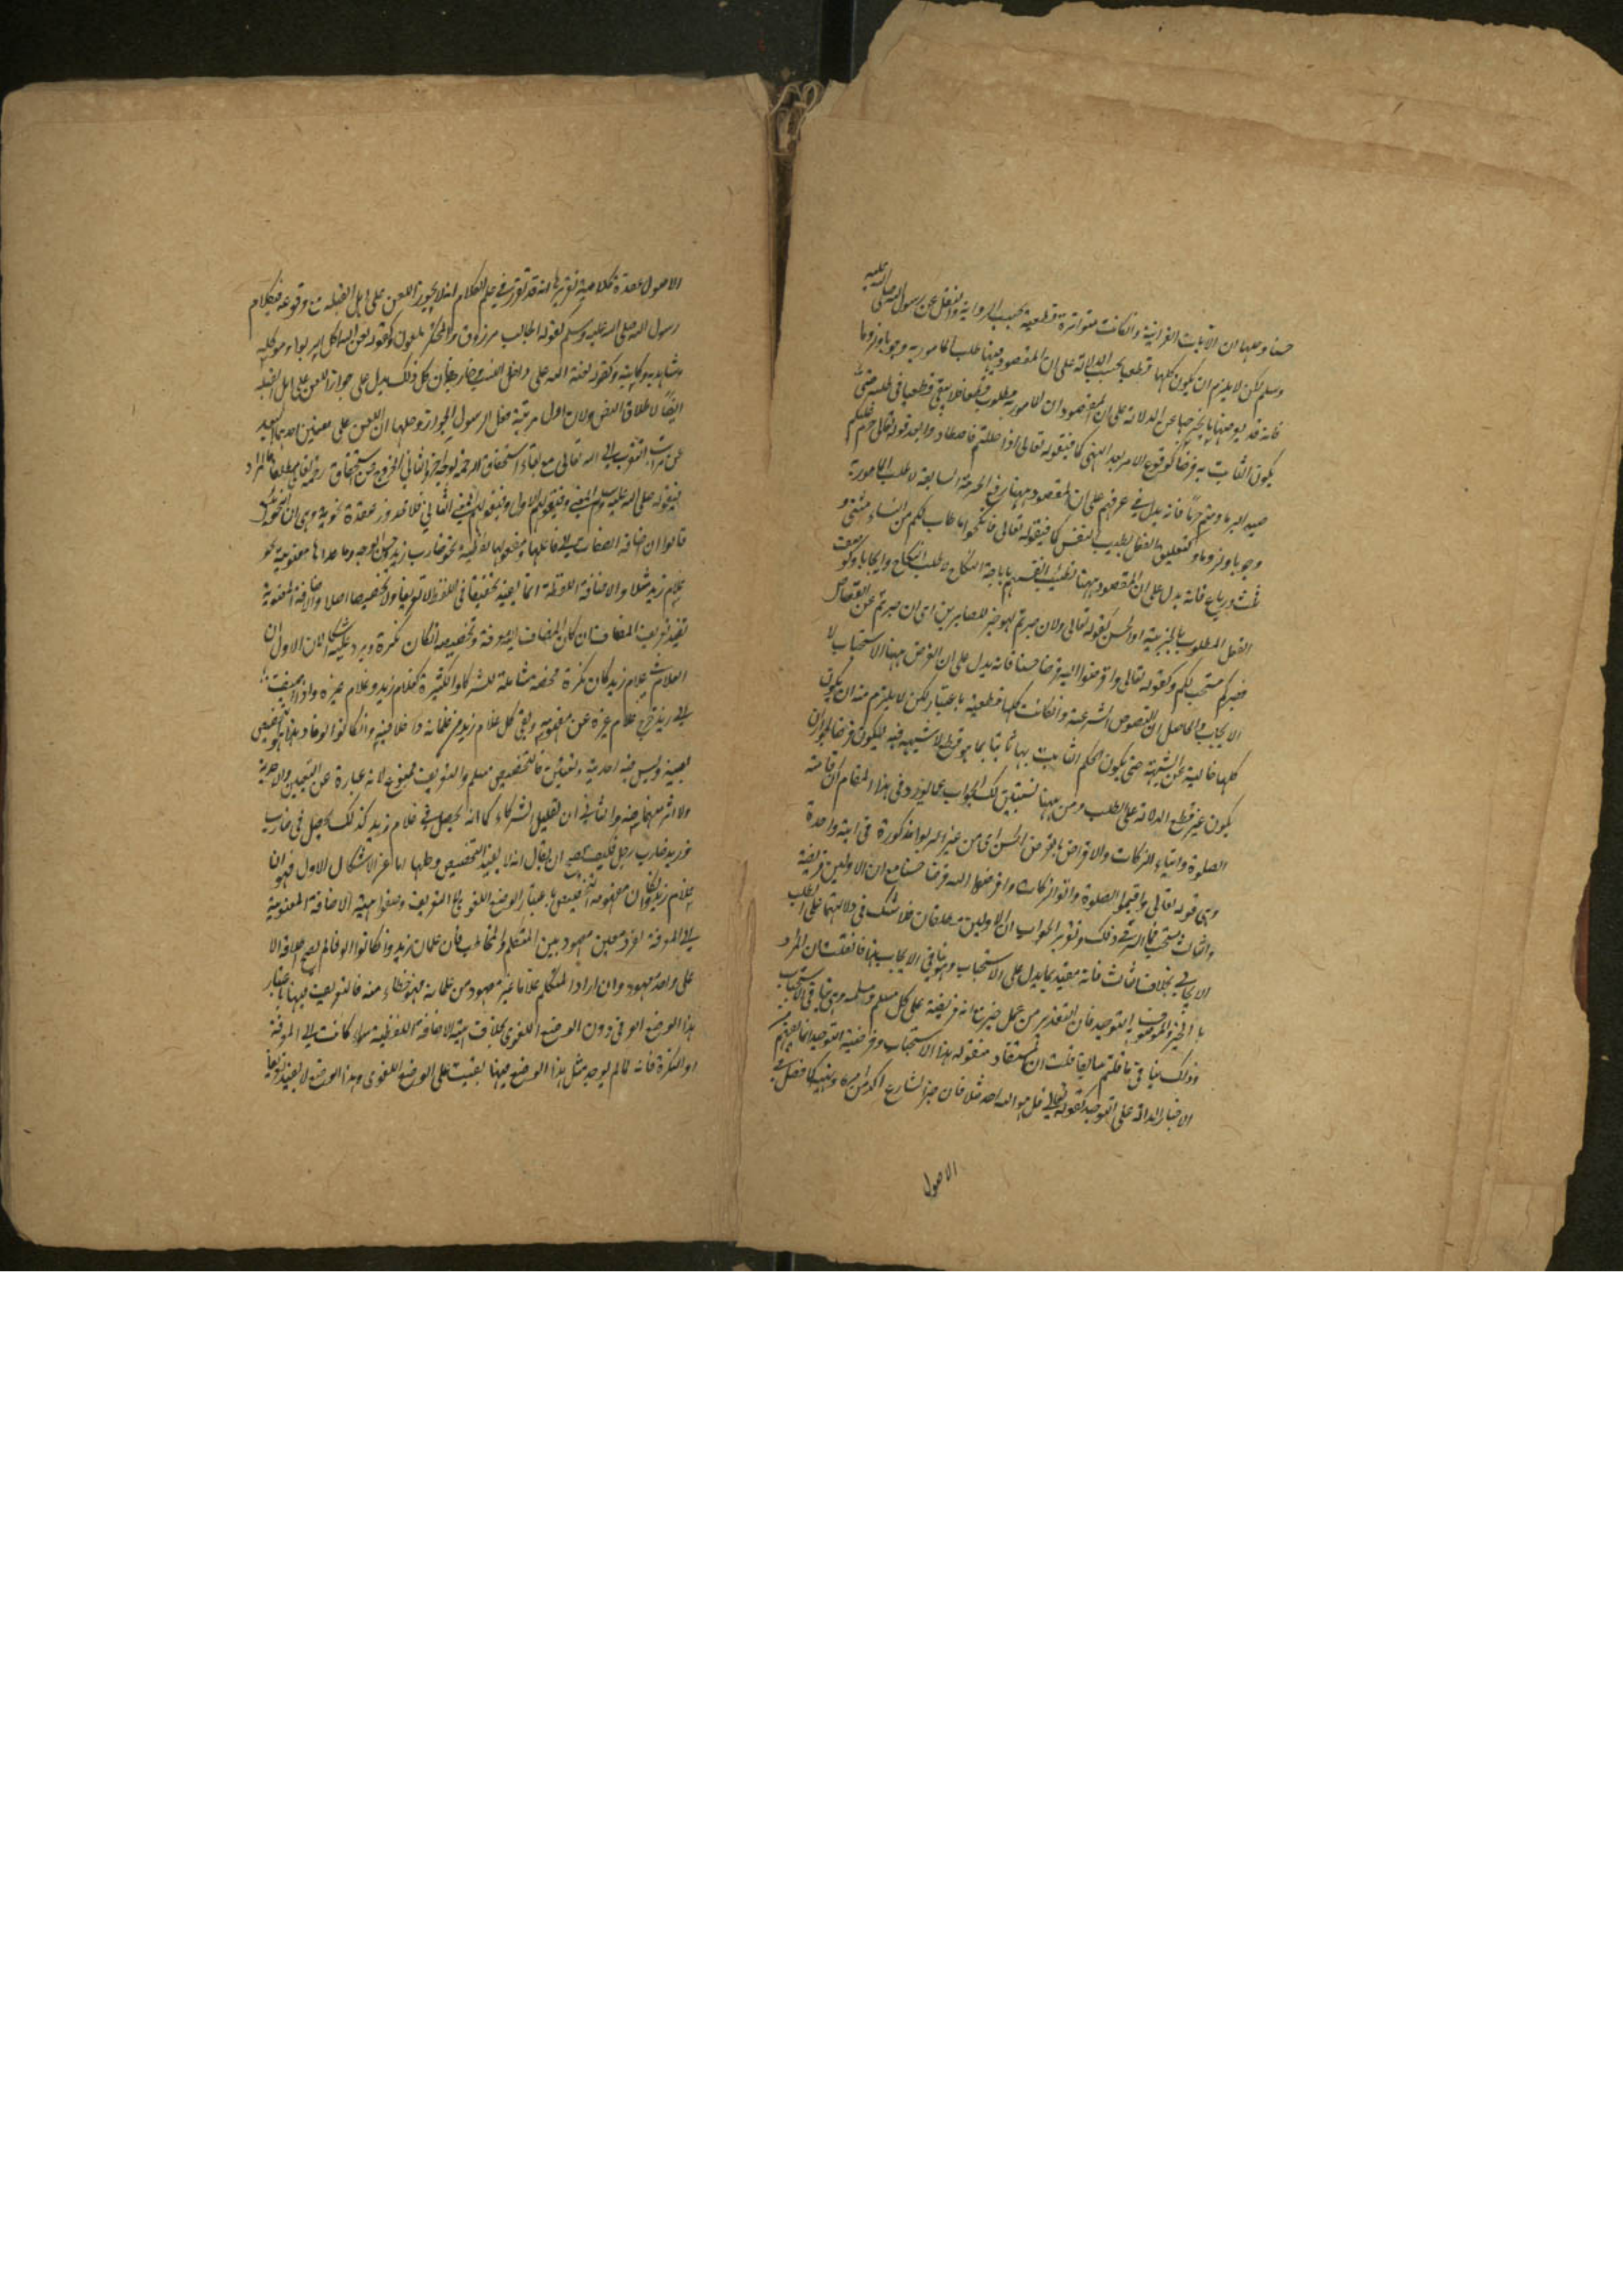 حسنا وحلها ان الآيات القرانية وانكانت متواترة قطعية بحسب الرواية والنقل عن رسول الله صلى الله عليه
وسلم لكن لا يلزم ان يكون كلها قطعيا بحسب الدلالة على ان المقصود منها طلب المامور به وجوبا ولزوما
فانه قد يوجد منها ما يخرجها عن الدلالة على ان المقصود ان المامور به مطلوب قطعا فلا يبقى قطعيا في طلبه حتى
يكون الثابت به فرضا كوقوع الامر بعد النهي كما في قوله تعالى اذا حللتم فاصطادوا بعد قوله تعالى حرم عليكم
صيد البر ما دمتم حرما فانه يدل في عرفهم على ان المقصود ههنا رفع الحرمة السابقة لا طلب المامور به
وجوبا ولزوما وكتعليق الفعل بطيب النفس كما في قوله تعالى فانكحوا ما طاب لكم من النساء مثنى و
ثلث ورباع فانه يدل على ان المقصود ههنا تطييب انفسهم باباحة النكاح لا طلب النكاح وايجابا وكوصف
الفعل المطلوب بالخيرية او الحسن كقوله تعالى ولان صبرتم لهو خير للصابرين اى ان صبرتم عن القصاص
فصبركم مستحب لكم وكقوله تعالى واقرضوا الله قرضا حسنا فانه يدل على ان الغرض ههنا الاستحباب لا
الايجاب والحاصل ان النصوص الشرعية وانكانت كلها قطعية باعتبار لكن لا يلزم منه ان يكون
كلها خالية عن الشبهة حتى يكون الحكم الثابت بها ثابتا بما هو قطع لا شبهة فيه فيكون فرضا لجواز ان
يكون غير قطع الدلالة على الطلب ومن ههنا لك الجواب عما يورد في هذا المقام ان اقامة
الصلوة وايتاء الزكات والاقراض بالقرض الحسن اى من غير الربوا مذكورة في آية واحدة
وهى قوله تعالى واقيموا الصلوة واتوا الزكات واقرضوا الله قرضا حسنا مع ان الاولين فريضة
والثالث مستحب فما السر في ذلك وتقرير الجواب ان الاولين مطلقان فلا شك في دلالتهما على الطلب
الايجابي بخلاف الثالث فانه مقيد بما يدل على الاستحباب وهو ينافي الايجاب فان قلت ان المراد
بالخير الموصوف التوحيد فان التقدير من عمل خير مع انه فريضة على كل مسلم ومسلمة وهى ينافي الاستحباب
وذلك ينافي ما قلتم سابقا قلت ان المستفاد من قوله هذا الاستحباب وفرضية التوحيد انما يفهم من
الاخبار الدالة على التوحيد كقوله تعالى قل هو الله احد مثلا فان خبر الشارع اكد من امره ونهيه كما فصل في
الاصول
الاصول عقدة كلامية تقريرها انه قد تقرر في علم الكلام انه لا يجوز اللعن على اهل القبلة مع وقوعه في كلام
رسول الله صلى الله عليه وسلم كقوله الجالب مرزوق والمحتكر ملعون وكقوله لعن الله اكل الربواء وموكله
وشاهديه وكاتبه وكقوله لعنة الله على داخل النسب وخارجه فان كل ذلك يدل على جواز اللعن على اهل القبلة
ايضا لاطلاق النص ولان اول مرتبة فعل الرسول الجواز وحلها ان اللعن على معنيين احدهما البعيد
عن مراتب التقرب الى الله تعالى مع بقاء استحقاق الرحمة بوجه آخر والثاني الخروج عن استحقاق رحمة تعالى مطلقا فالمراد
في قوله صلى الله عليه وسلم المعنى وفي قولهم الاول وفي قولهم المعنى الثاني فلا محذور عقدة نحوية وهى ان النحويين
قالوا ان اضافة الصفات الى فاعلها او مفعولها لفظية نحو ضارب زيد وحسن الوجه وما عداها معنوية نحو
غلام زيد مثلا والاضافة اللفظية انما يفيد تخفيفا في اللفظ لا تعريفا ولا تخصيصا اصلا والاضافة المعنوية
تفيد تعريف المضاف ان كان المضاف اليه معرفة وتخصيصه انكان نكرة ويرد عليه اشكالان الاول ان
الغلام في غلام زيد كان نكرة محضة شاملة للشركاء الكثيرة كغلام زيد وغلام عمرو وغيره واذا اضيفت
الى زيد خرج غلام غيره عن مفهومه وبقي كل غلام زيد من غلمانه داخلا فيه وانكانوا الوفا وهذا هو التخصيص
بعينه وليس فيه احدية وتعين فالتخصيص مسلم والتعريف ممنوع لانه عبارة عن التعيين والاحدية
ولا اثر منهما فيه والثاني ان تقليل الشركاء كما انه يحصل في غلام زيد كذلك يحصل في ضارب
زيد ضارب رجل فكيف يصح ان يقال انه لا يفيد التخصيص وحلها اما عن الاشكال الاول فهو ان
غلام زيد وان كان مفهومه التخصيص باعتبار الوضع اللغوي لا التعريف وضعوا هيئة الاضافة المعنوية
الى المعرفة لفرد معين معهود بين المتكلم والمخاطب فان غلمان زيد وانكانوا الوفا لم يصح اطلاقه الا
على واحد معهود وان اراد المتكلم غلاما غير معهود من غلمانه فهو خطاء منه فالتعريف ههنا باعتبار
هذا الوضع العرفي دون الوضع اللغوي بخلاف هيئة الاضافة اللفظية سواء كانت الى المعرفة
او النكرة فانه لما لم يوجد مثل هذا الوضع ههنا بقيت على الوضع اللغوي وهذا الوضع لا يفيد تعريفا